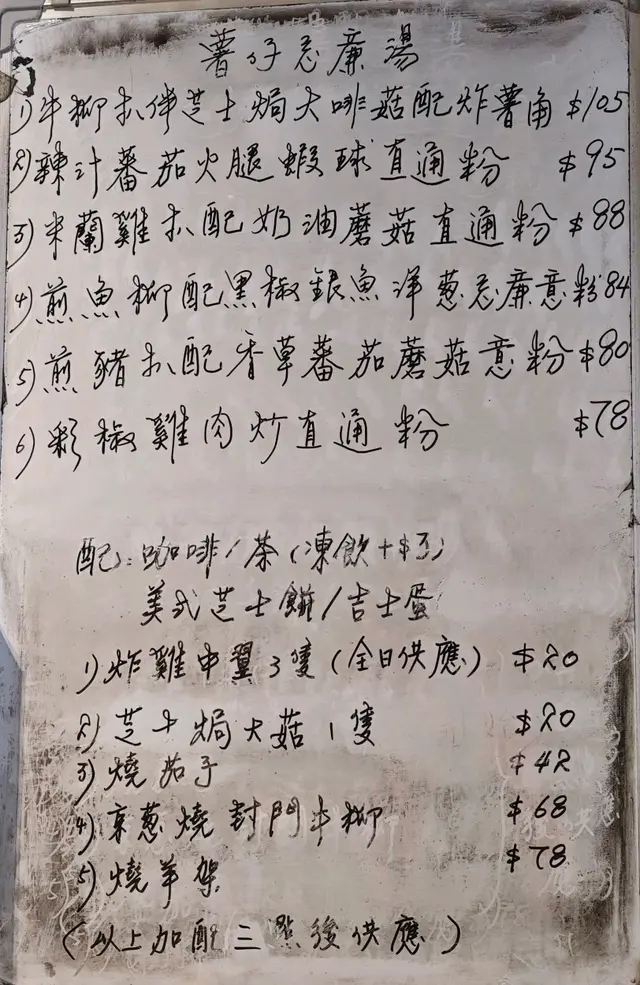 薯仔忌廉湯
1) 牛柳扒伴芝士焗大啡菇配炸薯角 $105
2) 辣汁蕃茄火腿蝦球直通粉 $95
3) 米蘭雞扒配奶油蘑菇直通粉 $88
4) 煎魚柳配黑椒銀魚洋葱忌廉意粉 84
5) 煎豬扒配香草蕃茄蘑菇意粉 $80
6) 彩椒雞肉炒直通粉 $78
配: 咖啡/茶 (凍飲+$3)
美式芝士餅/吉士蛋
1) 炸雞中翼3隻 (全日供應) $20
2) 芝士焗大菇1隻 $20
3) 燒茄子 $42
4) 京葱燒封門牛柳 $68
5) 燒羊架 $78
(以上加配三點後供應)